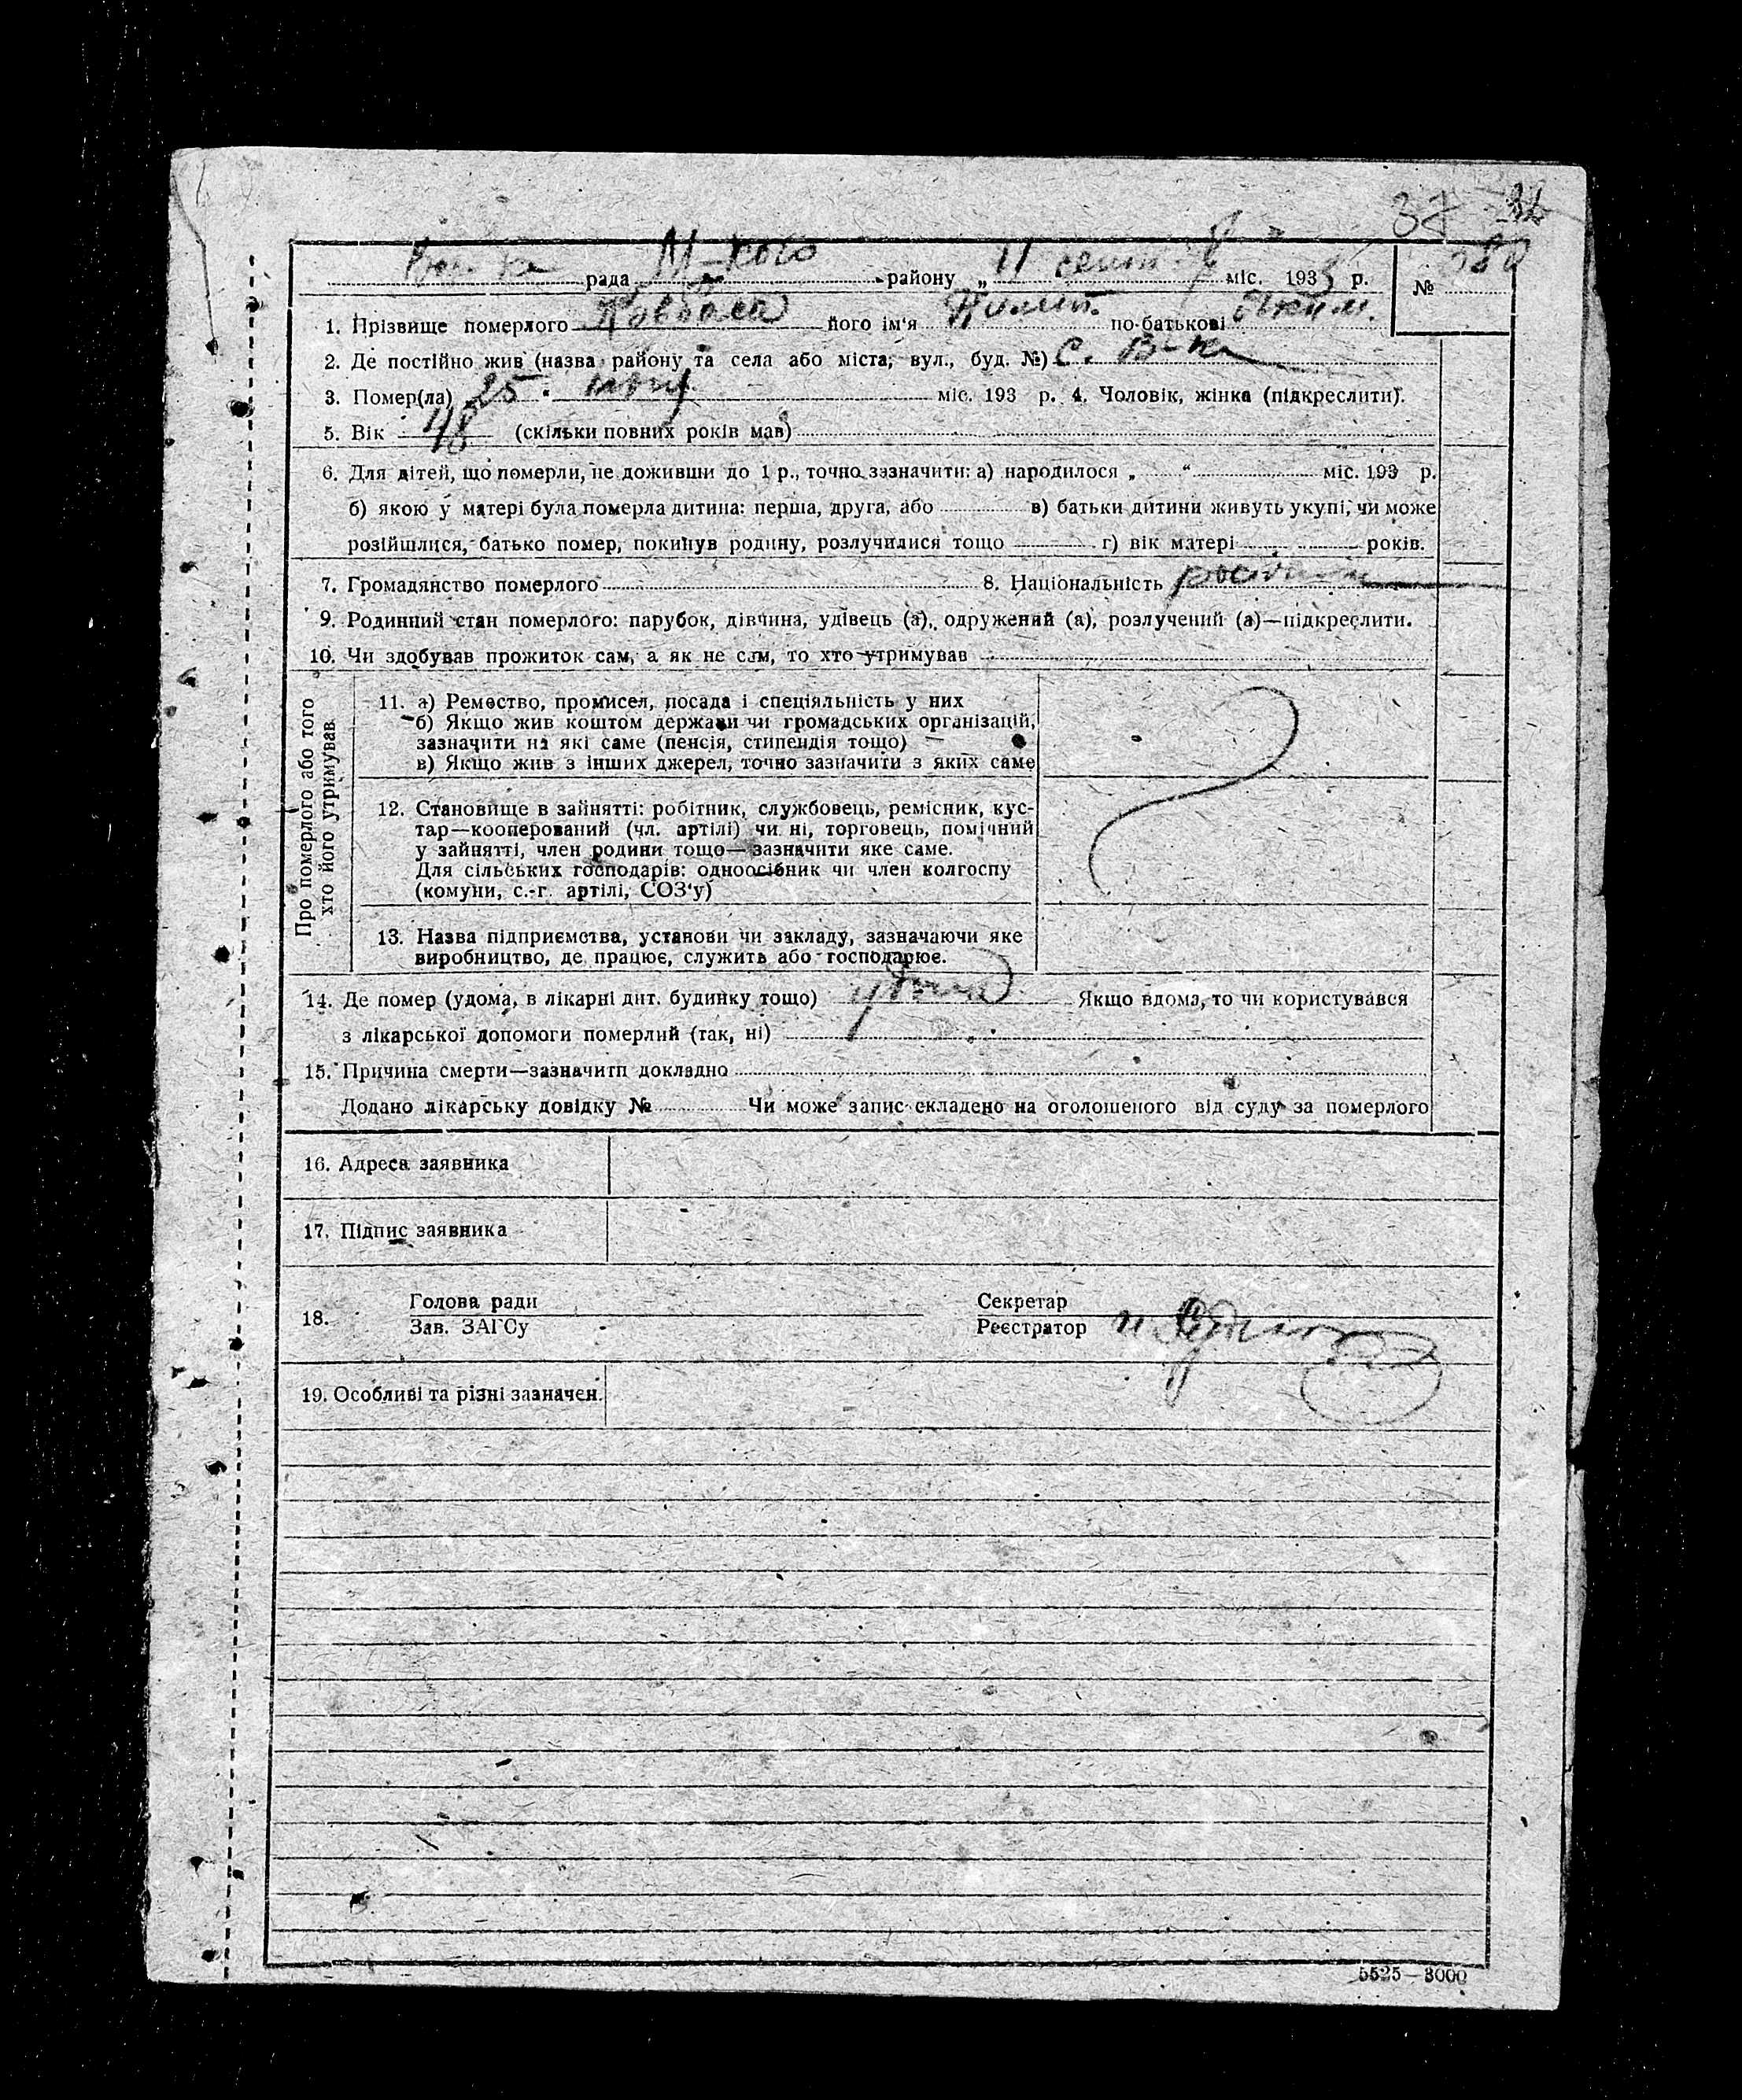 37
рада М-кого району „ 11 сент. міс. 1933 р. №
1. Прізвище померлого Ковбаса його ім'я по-батькові Яким.
2. Де постійно жив (назва району та села або міста, вул., буд. №) с. В-ка
3. Помер(ла) 25 " міс. 193 р. 4. Чоловік, жінка (підкреслити).
5. Вік 48 (скільки повних років мав)
6. Для дітей, що померли, не доживши до 1 р., точно зазначити: а) народилося „ " міс. 193 р.
б) якою у матері була померла дитина: перша, друга, або в) батьки дитини живуть укупі, чи може
розійшлися, батько помер, покинув родину, розлучилися тощо г) вік матері років.
7. Громадянство померлого 8. Національність
9. Родинний стан померлого: парубок, дівчина, удівець (а), одружений (а), розлучений (а)—підкреслити.
10. Чи здобував прожиток сам, а як не сам, то хто утримував
Про померлого або того
хто його утримував
11. а) Ремество, промисел, посада і спеціяльність у них
б) Якщо жив коштом держави чи громадських організацій,
зазначити на які саме (пенсія, стипендія тощо) —
в) Якщо жив з інших джерел, точно зазначити з яких саме
12. Становище в зайнятті: робітник, службовець, ремісник, кус-
тар—кооперований (чл. артілі) чи ні, торговець, помічний
у зайнятті, член родини тощо—зазначити яке саме.
Для сільських господарів: одноосібник чи член колгоспу
(комуни, с.-г. артілі, СОЗ'у)
13. Назва підприємства, установи чи закладу, зазначаючи яке
виробництво, де працює, служить або господарює.
14. Де помер (удома, в лікарні дит. будинку тощо) удома Якщо вдома, то чи користувався
з лікарської допомоги померлий (так, ні)
15. Причина смерти—зазначити докладно
Додано лікарську довідку № Чи може запис складено на оголошеного від суду за померлого
16. Адреса заявника
17. Підпис заявника
18. Голова ради Секретар
Зав. ЗАГСу Реєстратор
19. Особливі та різні зазначен.
5525—3000